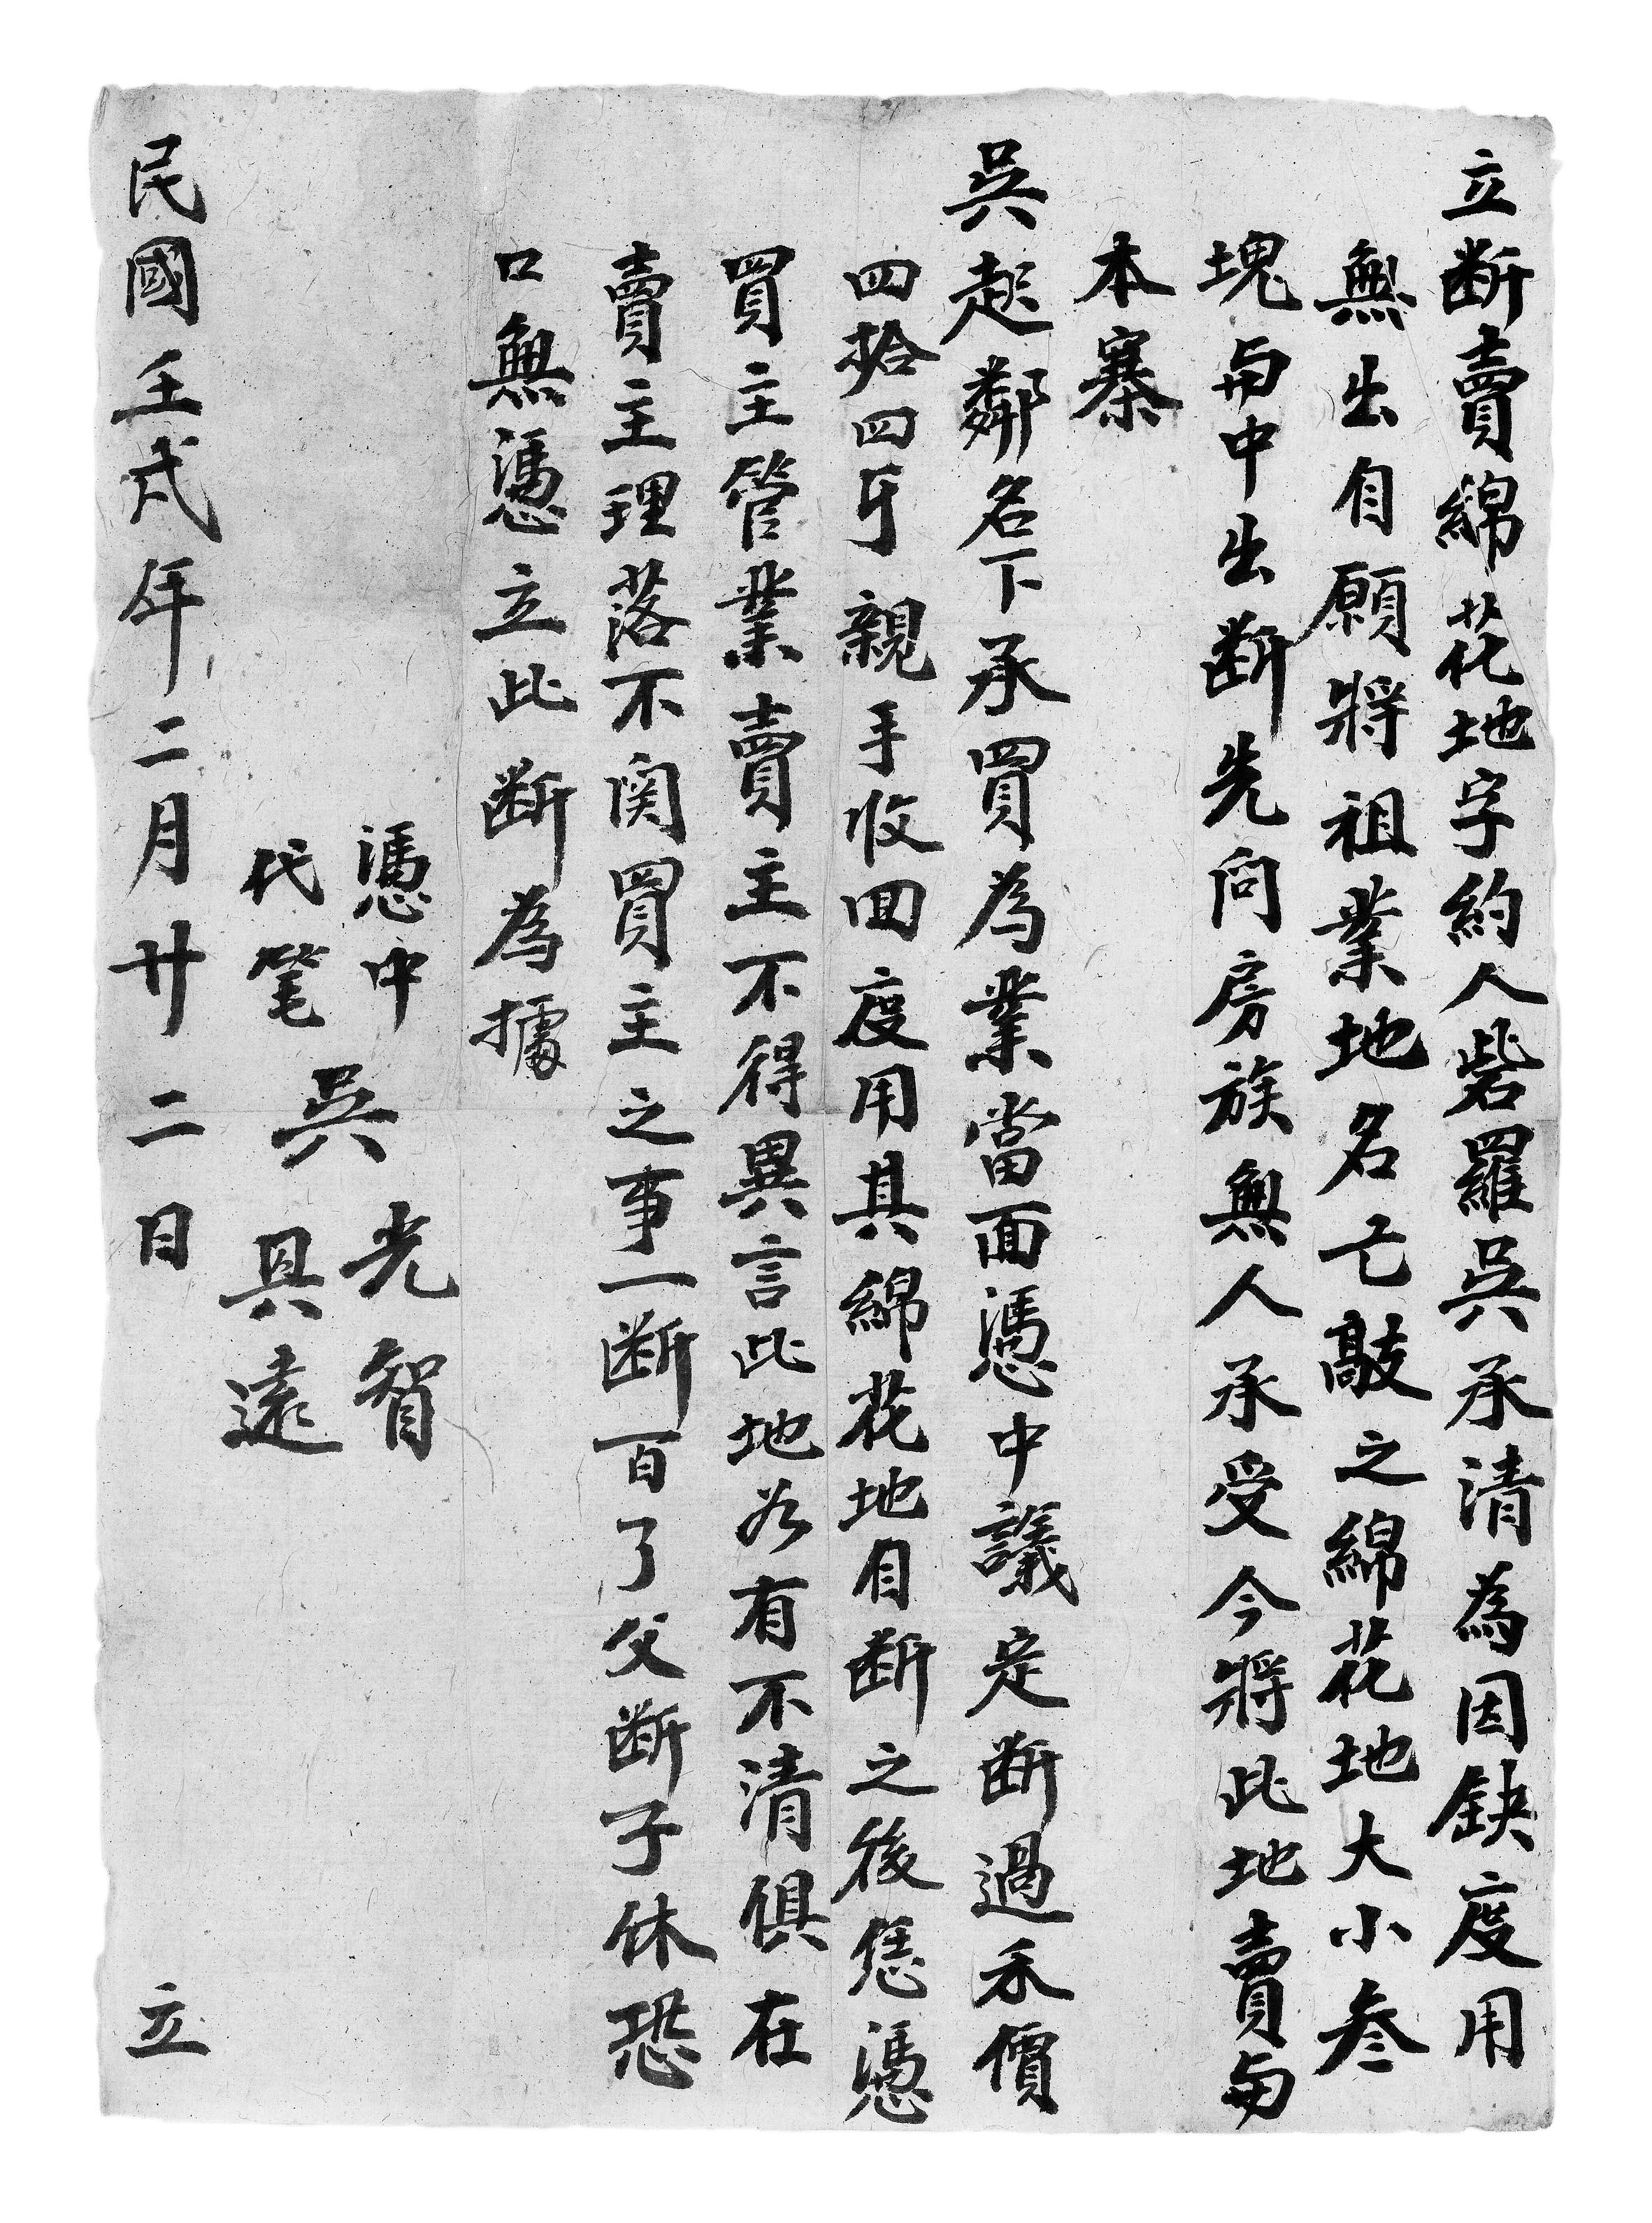 立断賣綿花地字約人砦羅吳承清為因缺度用
無出自願將祖業地名亡敲之綿花地大小叁
塊與中出断先问房族無人承受今將此地賣與
本寨
吳起鄰名下承買為業當面憑中議定断過禾價
四拾四 親手收回度用其綿花地自断之後恁憑
買主管業賣主不得異言此地若有不清俱在
賣主理落不関買主之事一断百了父断子休恐
口無憑立此断為據
憑中 吳光智
代笔 吳具遠
民國壬戌年二月廿二日 立